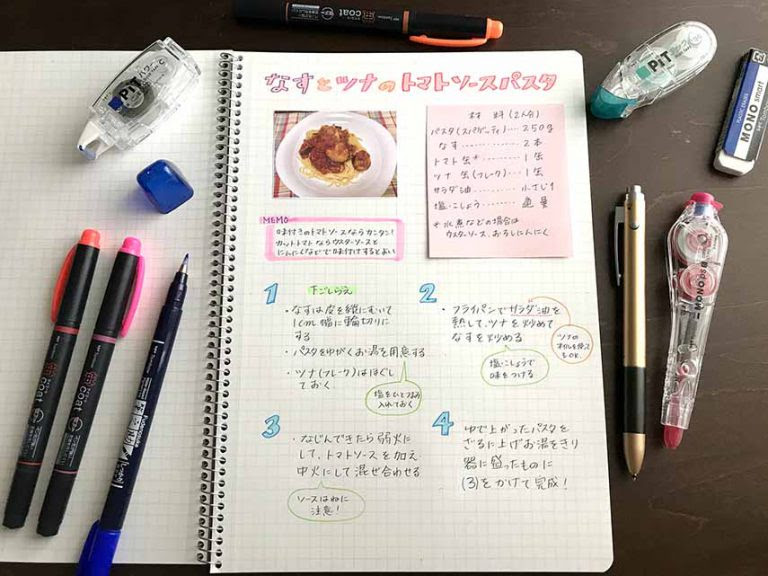 なすとツナのトマトソースパスタ
材料(2人分)
パスタ(スパゲッティ)・・・・250g
なす・・・・・・・・・・2本
トマト缶*・・・・・・・1缶
ツナ缶(フレーク)・・・・1缶
サラダ油・・・・・・・・小さじ1
塩・こしょう・・・・・・適量
*水煮などの場合は
ウスターソース、おろしにんにく
MEMO
味付きのトマトソースならカンタン!
カットトマトならウスターソースと
にんにくなどで味付けするとよい
1 下ごしらえ
・なすは皮を縦にむいて
1cm幅に輪切りに
する
・パスタをゆがくお湯を用意する
・ツナ(フレーク)はほぐし
ておく
塩をひとつまみ
入れておく
2
・フライパンでサラダ油を
熱して、ツナを炒めて
なすを炒める
ツナの
オイルを使っても
OK.
塩・こしょうで
味をつける
3
・なじんできたら弱火に
して、トマトソースを加え、
中火にして混ぜ合わせる
ソースはねに
注意!
4
ゆで上がったパスタを
ざるに上げお湯をきり
器に盛ったものに
(3)をかけて完成!
coat
PiT
PiT
MONO smart
coat
coat
Tombow
MONO